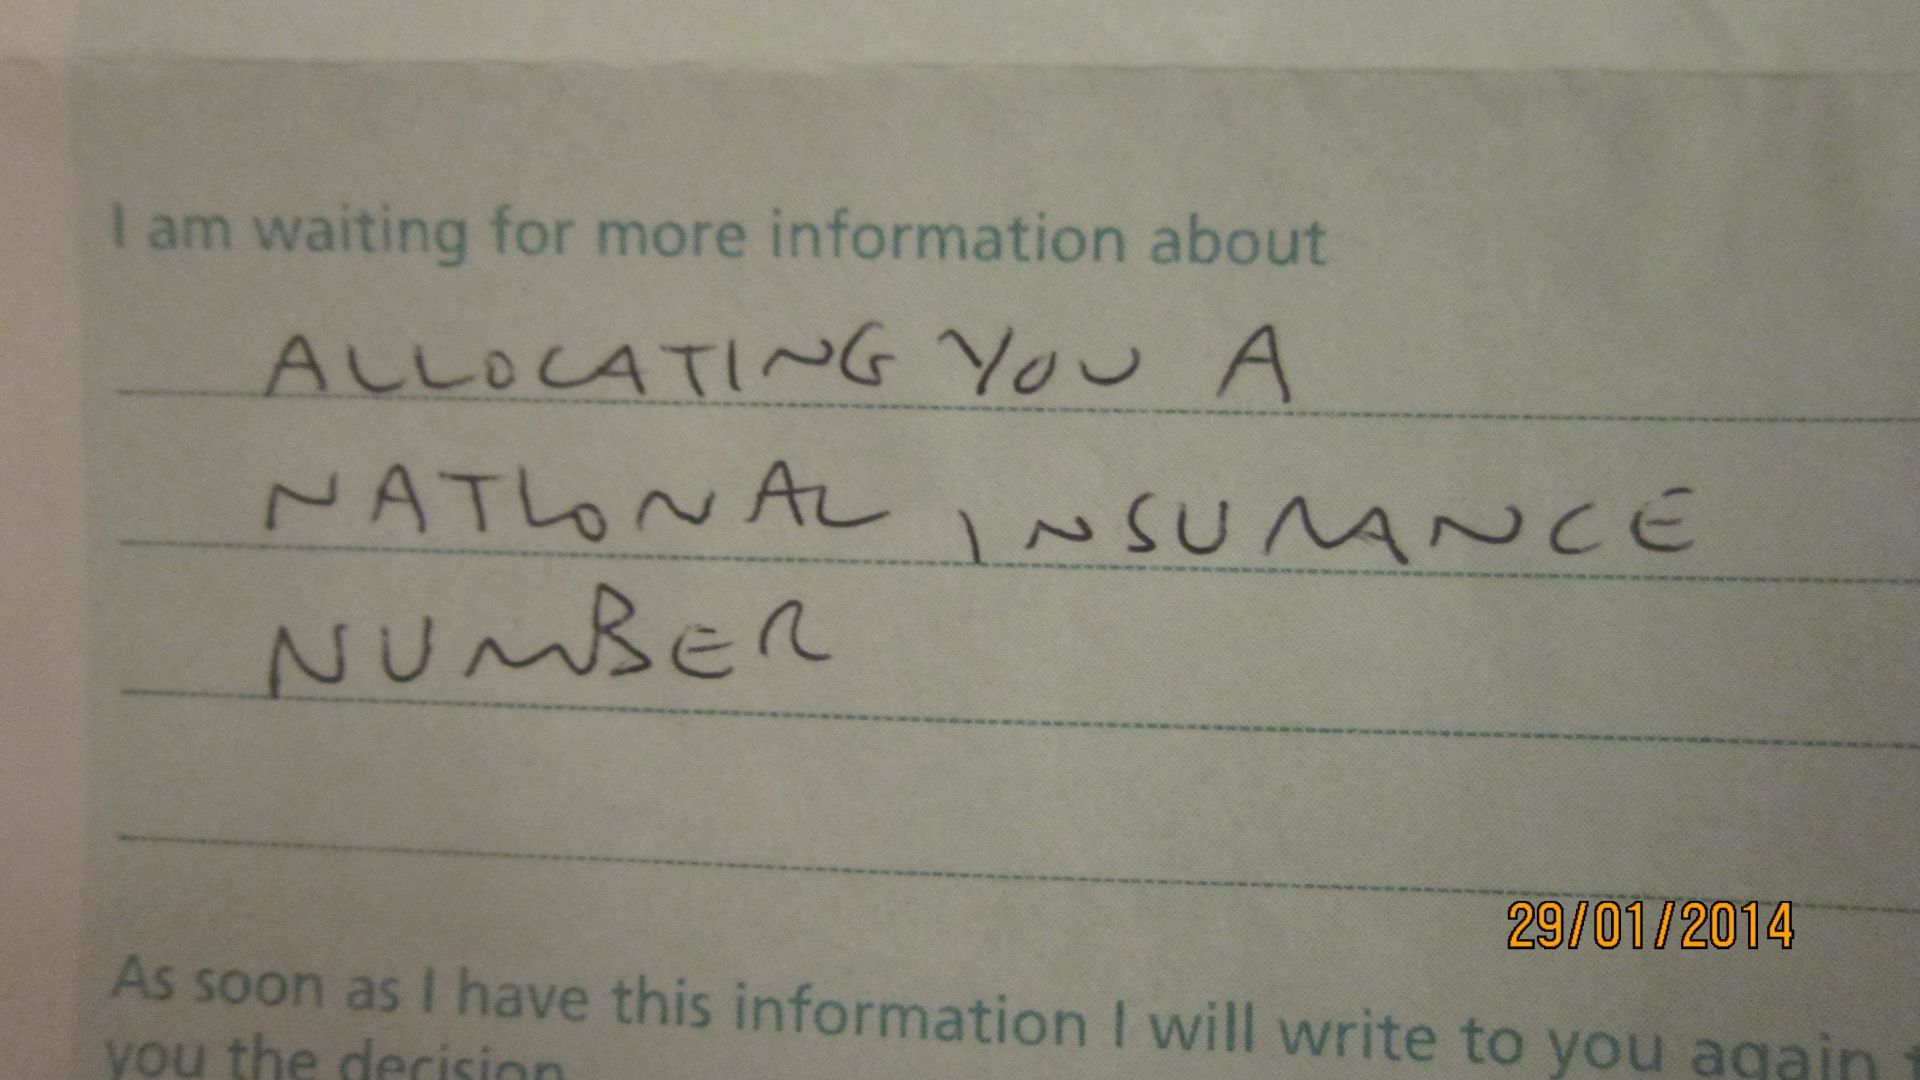 I am waiting for more information about
ALLOCATING YOU A
NATIONAL INSURANCE
NUMBER
29/01/2014
As soon as I have this information I will write to you again
you the decision